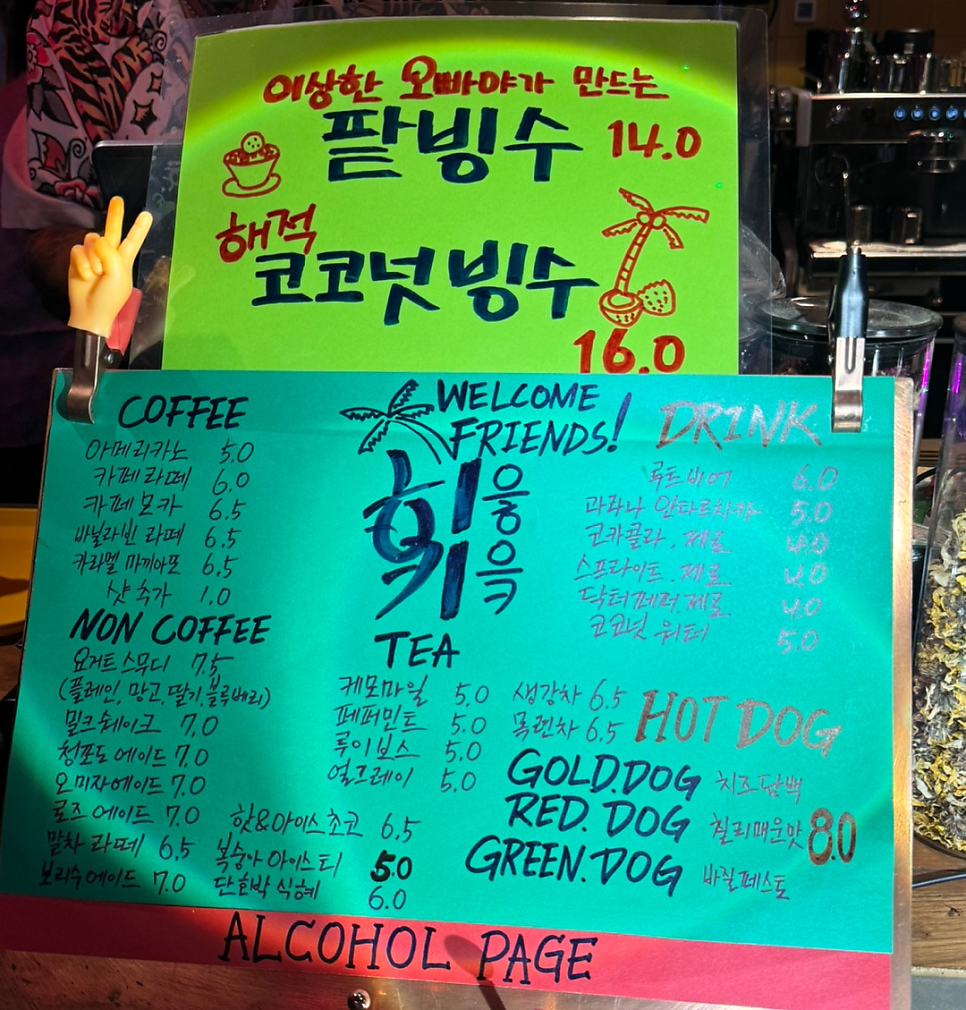 이상한 오빠야가 만드는
팥빙수 14.0
해적
코코넛 빙수
16.0
WELCOME
FRIENDS!
히 웅
키 윽
COFFEE
아메리카노 5.0
카페 라떼 6.0
카페 모카 6.5
바닐라빈 라떼 6.5
카라멜 마끼아또 6.5
샷 추가 1.0
NON COFFEE
요거트 스무디 7.5
(플레인, 망고, 딸기, 블루베리)
밀크쉐이크 7.0
청포도 에이드 7.0
오미자 에이드 7.0
로즈 에이드 7.0
말차 라떼 6.5
보리수 에이드 7.0
핫&아이스 초코 6.5
복숭아 아이스티 5.0
단호박 식혜 6.0
TEA
케모마일 5.0
페퍼민트 5.0
루이보스 5.0
얼그레이 5.0
생강차 6.5
목련차 6.5
DRINK
루트비어 6.0
과라나 안타르치카 5.0
코카콜라. 제로 4.0
스프라이트. 제로 4.0
닥터페퍼. 제로 4.0
코코넛 워터 5.0
HOT DOG
GOLD.DOG 치즈담백
RED. DOG 칠리매운맛 8.0
GREEN.DOG 바질페스토
ALCOHOL PAGE